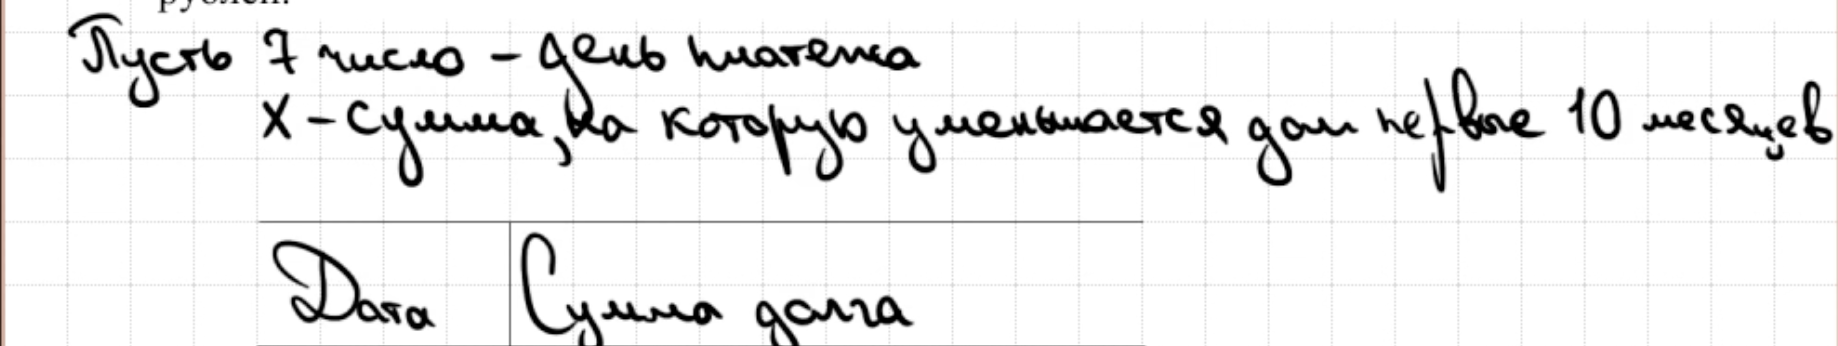 рублей.
Пусть 7 число - день платежа
X - сумма, на которую уменьшается долг первые 10 месяцев
Дата Сумма долга